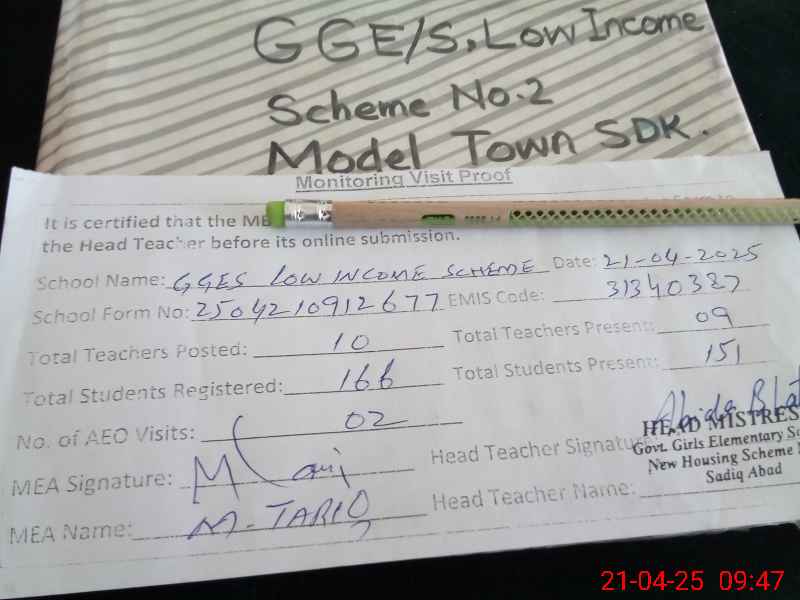 GGE/S, Low Income
Scheme No.2
Model Town SDK.
Monitoring Visit Proof
It is certified that the ME
the Head Teacher before its online submission.
School Name: GGES LOW INCOME SCHEME Date: 21-04-2025
School Form No: 2504210912677 EMIS Code: 31340327
Total Teachers Posted: 10 Total Teachers Present: 09
Total Students Registered: 166 Total Students Present: 151
No. of AEO Visits: 02
HEAD MISTRES
MEA Signature: Head Teacher Signature:
Govt. Girls Elementary Sc
New Housing Scheme
Sadiq Abad
MEA Name: M-TARIQ Head Teacher Name:
21-04-25 09:47